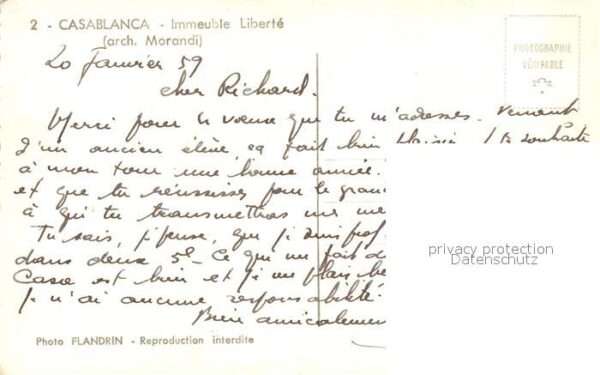 2 - CASABLANCA - Immeuble Liberté
(arch. Morandi)
PHOTOGRAPHIE
VÉRITABLE
20 Janvier 59
cher Richard.
Merci pour les voeux que tu m'adresses. Venant
d'un ancien élève, ça fait bien plaisir. Je te souhaite
à mon tour une bonne année.
et que tu réussisses pour le gran
à qui tu transmettras mes me
Tu sais, je pense, que je suis prof
dans deux 5e. Ce qui me fait de
Casa est bien et je me plais be
Je n'ai aucune responsabilité.
Bien amicalemen
privacy protection
Datenschutz
Photo FLANDRIN - Reproduction interdite